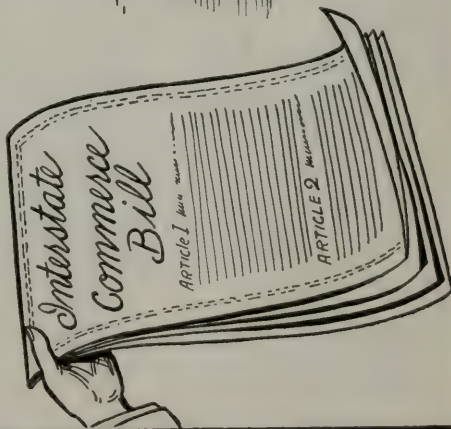 Interstate
Commerce
Bill
ARTICLE 1
ARTICLE 2